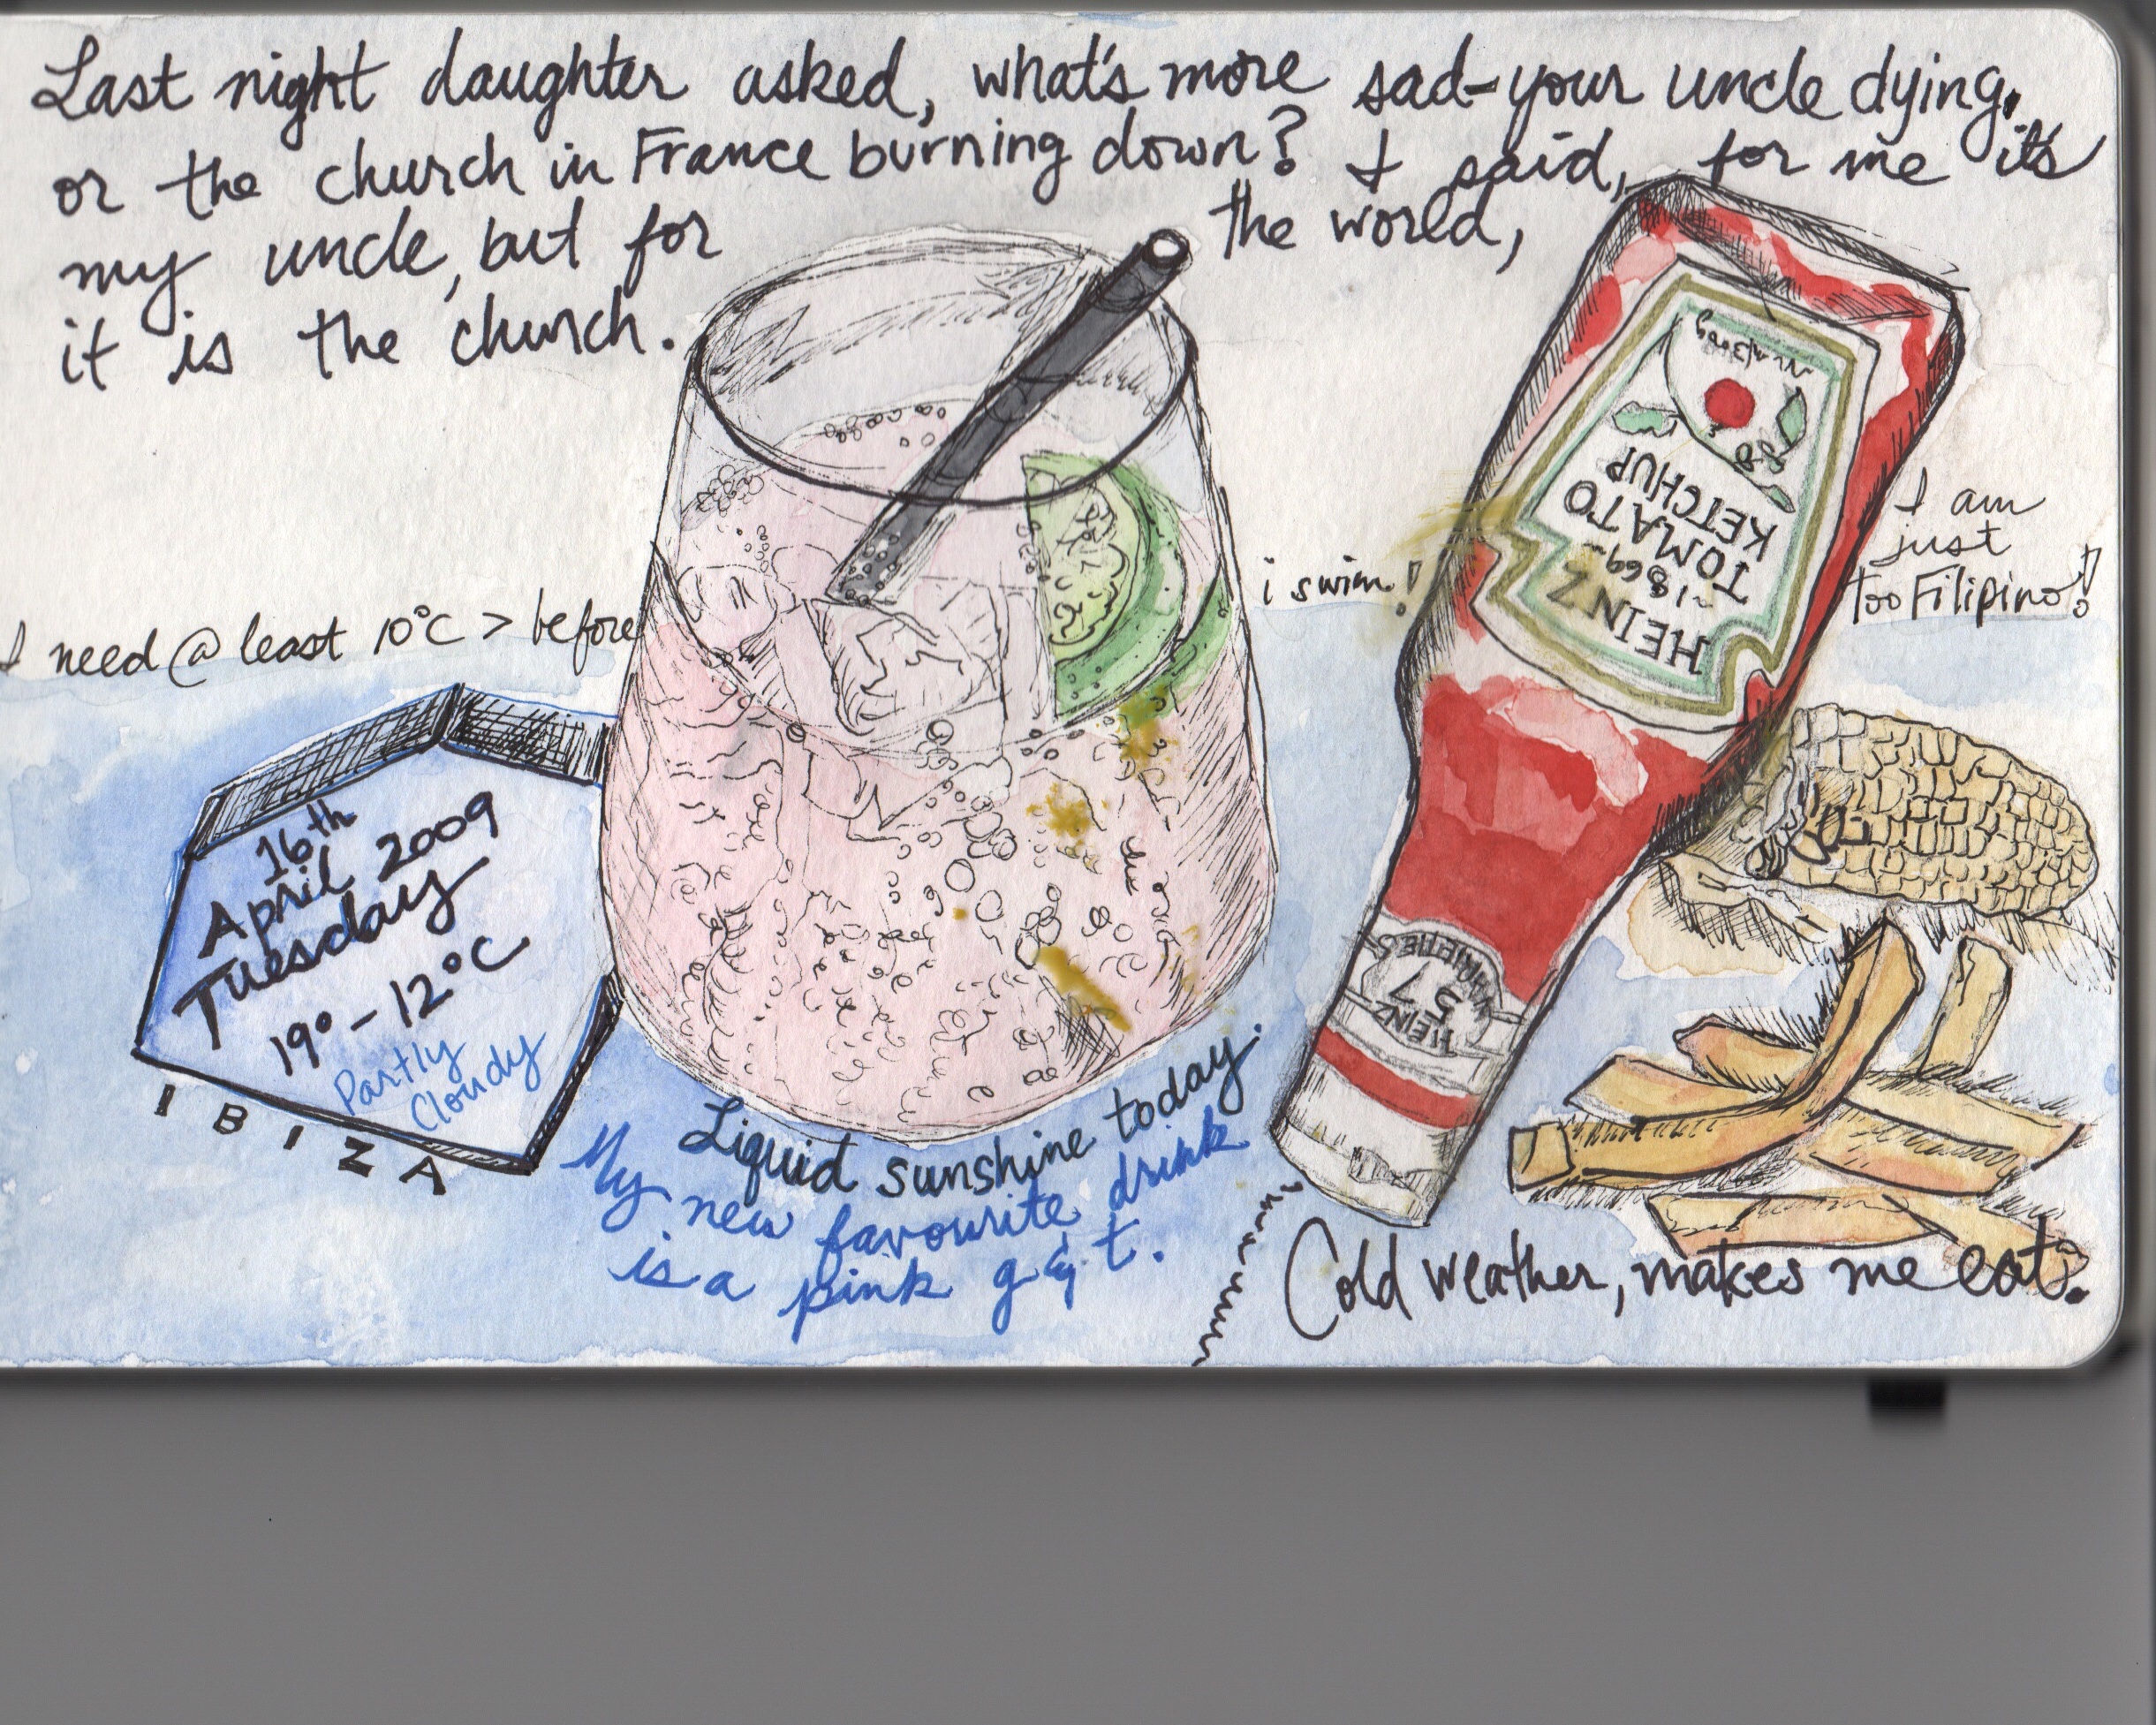 Last night daughter asked, what's more sad-your uncle dying,
or the church in France burning down? I said, for me it's
my uncle, but for the world,
it is the church.
I need @ least 10°C > before i swim!
I am
just
too Filipino!
16th
April 2009
Tuesday
19° - 12°C
Partly
Cloudy
IBIZA
HEINZ
~1869~
TOMATO
KETCHUP
HEINZ
57
VARIETIES
Liquid sunshine today.
My new favourite drink
is a pink g & t.
Cold weather, makes me eat.